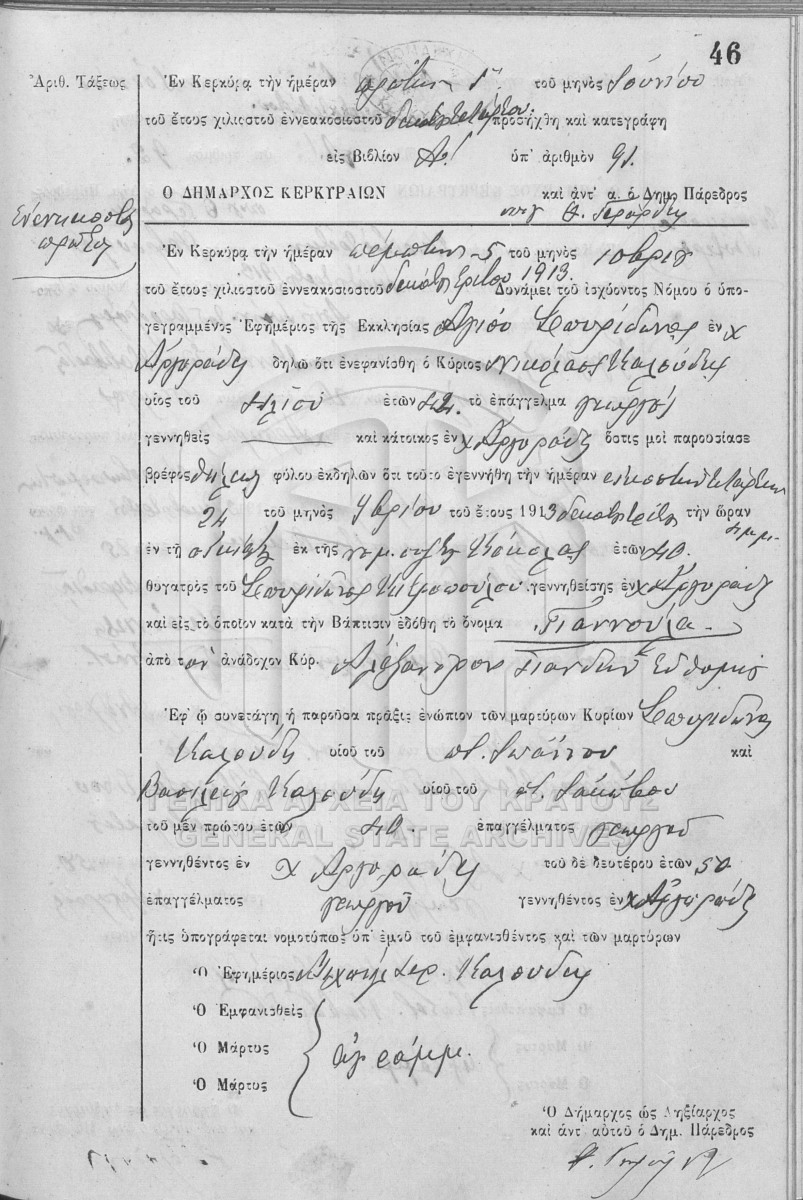 46
Ἀριθ. Τάξεως
Ἐν Κερκύρᾳ τὴν ἡμέραν πρώτην 1ην τοῦ μηνὸς Ἰουνίου
τοῦ ἔτους χιλιοστοῦ ἐννεακοσιοστοῦ δεκάτου τετάρτου. προσήχθη καὶ κατεγράφη
εἰς Βιβλίον Α! ὑπ' ἀριθμὸν 91.
Ο ΔΗΜΑΡΧΟΣ ΚΕΡΚΥΡΑΙΩΝ καὶ ἀντ' α. ὁ Δημ. Πάρεδρος
Ἐνενηκοστὴ
πρώτη
Ἐν Κερκύρᾳ τὴν ἡμέραν πέμπτην 5 τοῦ μηνὸς 10βρίου
τοῦ ἔτους χιλιοστοῦ ἐννεακοσιοστοῦ δεκάτου τρίτου 1913. Δυνάμει τοῦ ἰσχύοντος Νόμου ὁ ὑπο-
γεγραμμένος Ἐφημέριος τῆς Ἐκκλησίας Ἁγίου Σπυρίδωνος ἐν χ
Ἀργυράδες δηλῶ ὅτι ἐνεφανίσθη ὁ Κύριος Νικόλαος Καλούδης
υἱὸς τοῦ Ἠλίου ἐτῶν 42. τὸ ἐπάγγελμα γεωργὸς
γεννηθεὶς καὶ κάτοικος ἐν χ Ἀργυράδες ὅστις μοὶ παρουσίασε
βρέφος θήλεως φύλου ἐκδηλῶν ὅτι τοῦτο ἐγεννήθη τὴν ἡμέραν εἰκοστὴν τετάρτην
24 τοῦ μηνὸς 9βρίου τοῦ ἔτους 1913 δεκάτου τρίτου τὴν ὥραν
ἐν τῇ οἰκίᾳ ἐκ τῆς νομ. συζύγου ἐτῶν 40.
θυγατρὸς τοῦ Σπυρίδωνος Μητροπούλου. γεννηθείσης ἐν χ Ἀργυράδες
καὶ εἰς τὸ ὁποῖον κατὰ τὴν Βάπτισιν ἐδόθη τὸ ὄνομα Γιαννούλα.
ἀπὸ τὸν ἀνάδοχον Κύρ. Ἀλέξανδρον
Ἐφ' ᾧ συνετάγη ἡ παροῦσα πρᾶξις ἐνώπιον τῶν μαρτύρων Κυρίων Σπυρίδωνος
Καλούδη υἱοῦ τοῦ π. Ἰωάννου καὶ
Βασιλείου Καλούδη υἱοῦ τοῦ π. Ἰακώβου
ΓΕΝΙΚΑ ΑΡΧΕΙΑ ΤΟΥ ΚΡΑΤΟΥΣ
τοῦ μὲν πρώτου ἐτῶν 40. ἐπαγγέλματος γεωργοῦ
GENERAL STATE ARCHIVES
γεννηθέντος ἐν χ Ἀργυράδες τοῦ δὲ δευτέρου ἐτῶν 50
ἐπαγγέλματος γεωργοῦ γεννηθέντος ἐν χ Ἀργυράδες
ἥτις ὑπογράφεται νομοτύπως ὑπ' ἐμοῦ τοῦ ἐμφανισθέντος καὶ τῶν μαρτύρων
Ὁ Ἐφημέριος Μιχαὴλ Ἱερ. Καλούδης
Ὁ Ἐμφανισθεὶς
Ὁ Μάρτυς ἀγράμμ.
Ὁ Μάρτυς
Ὁ Δήμαρχος ὡς Ληξίαρχος
καὶ ἀντ' αὐτοῦ ὁ Δημ. Πάρεδρος